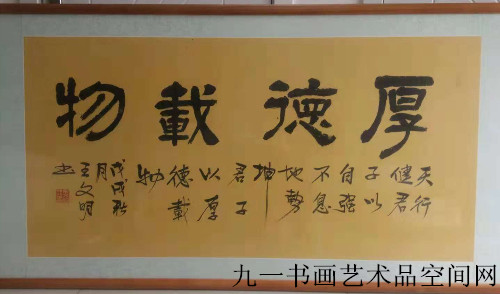 厚德載物
天行
健君
子以
自强
不息
地勢
坤
君子
以厚
德載
物
戊戌秋
月
王文明
书
九一书画艺术品空间网